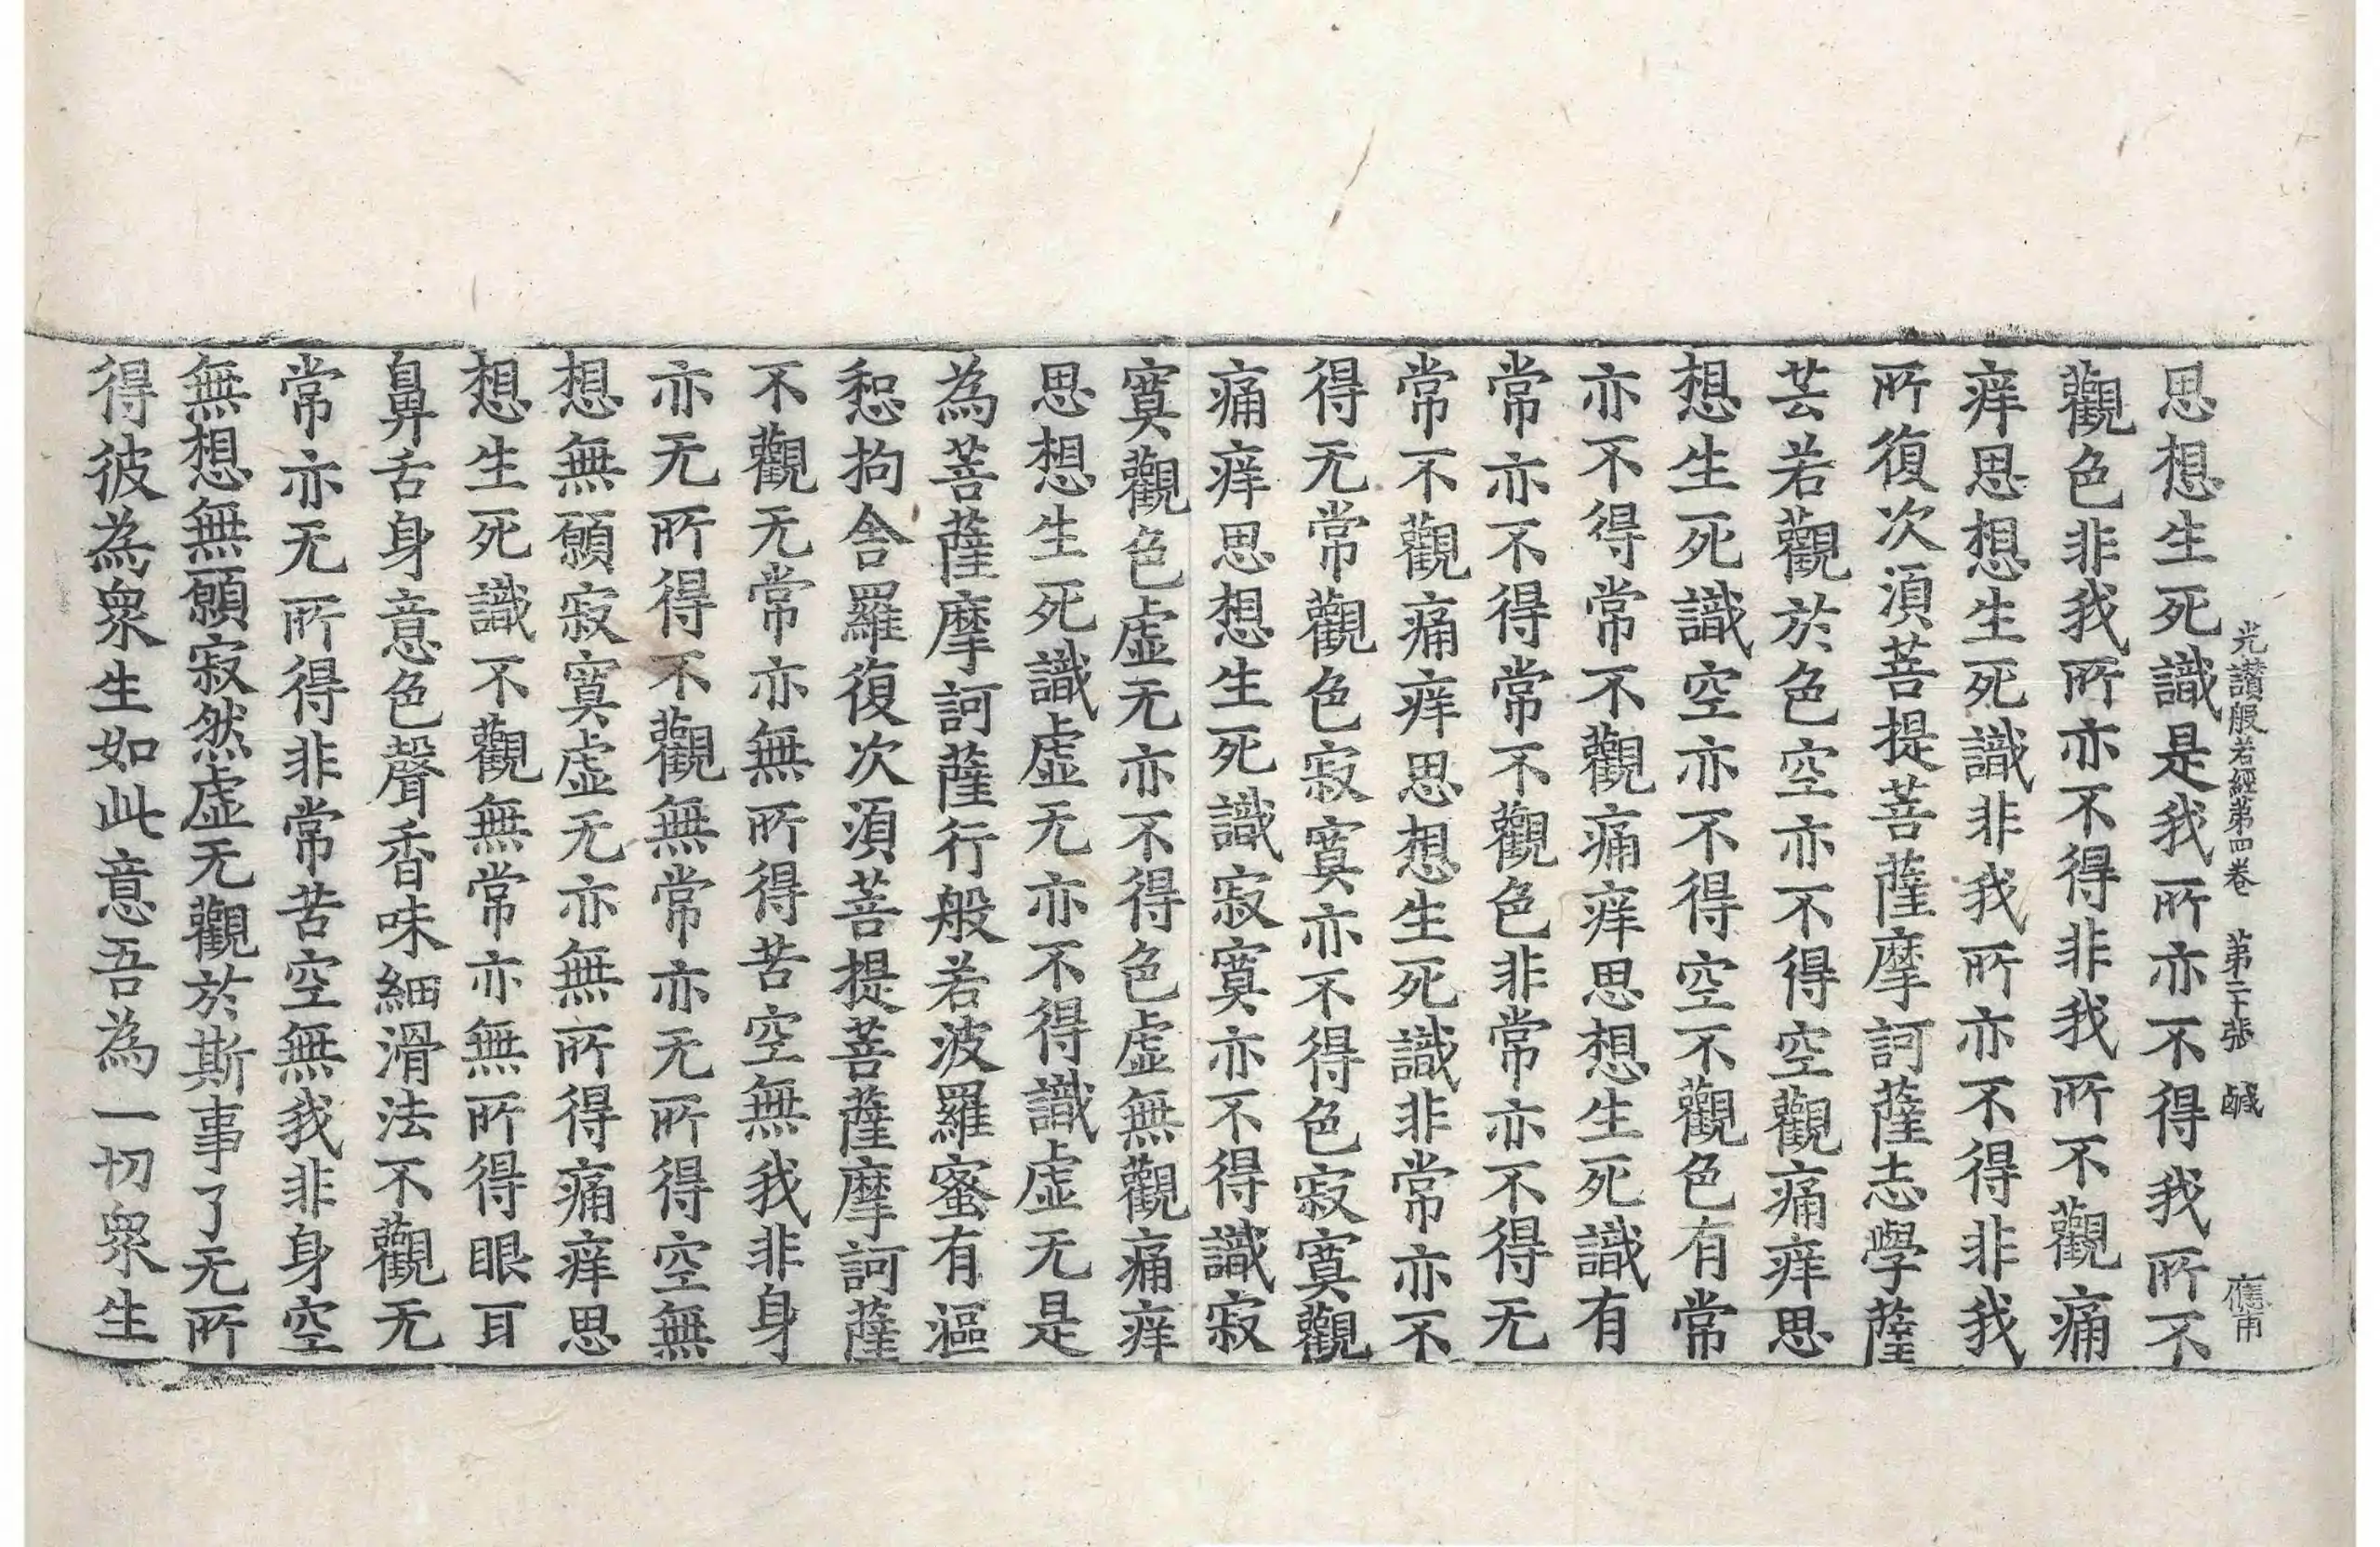 光讃般若經第四卷　第二十張　鹹
思想生死識是我所亦不得我所不
觀色非我所亦不得非我所不觀痛
痒思想生死識非我所亦不得非我
所復次湏菩提菩薩摩訶薩志學薩
芸若觀於色空亦不得空觀痛痒思
想生死識空亦不得空不觀色有常
亦不得常不觀痛痒思想生死識有
常亦不得常不觀色非常亦不得无
常不觀痛痒思想生死識非常亦不
得无常觀色寂寞亦不得色寂寞觀
痛痒思想生死識寂寞亦不得識寂
寞觀色虛无亦不得色虛無觀痛痒
思想生死識虛无亦不得識虛无是
為菩薩摩訶薩行般若波羅蜜有漚
惒拘舍羅復次湏菩提菩薩摩訶薩
不觀无常亦無所得苦空無我非身
亦无所得不觀無常亦无所得空無
想無願寂寞虛无亦無所得痛痒思
想生死識不觀無常亦無所得眼耳
鼻舌身意色聲香味細滑法不觀无
常亦无所得非常苦空無我非身空
無想無願寂然虛无觀於斯事了无所
得彼為衆生如此意吾為一切衆生